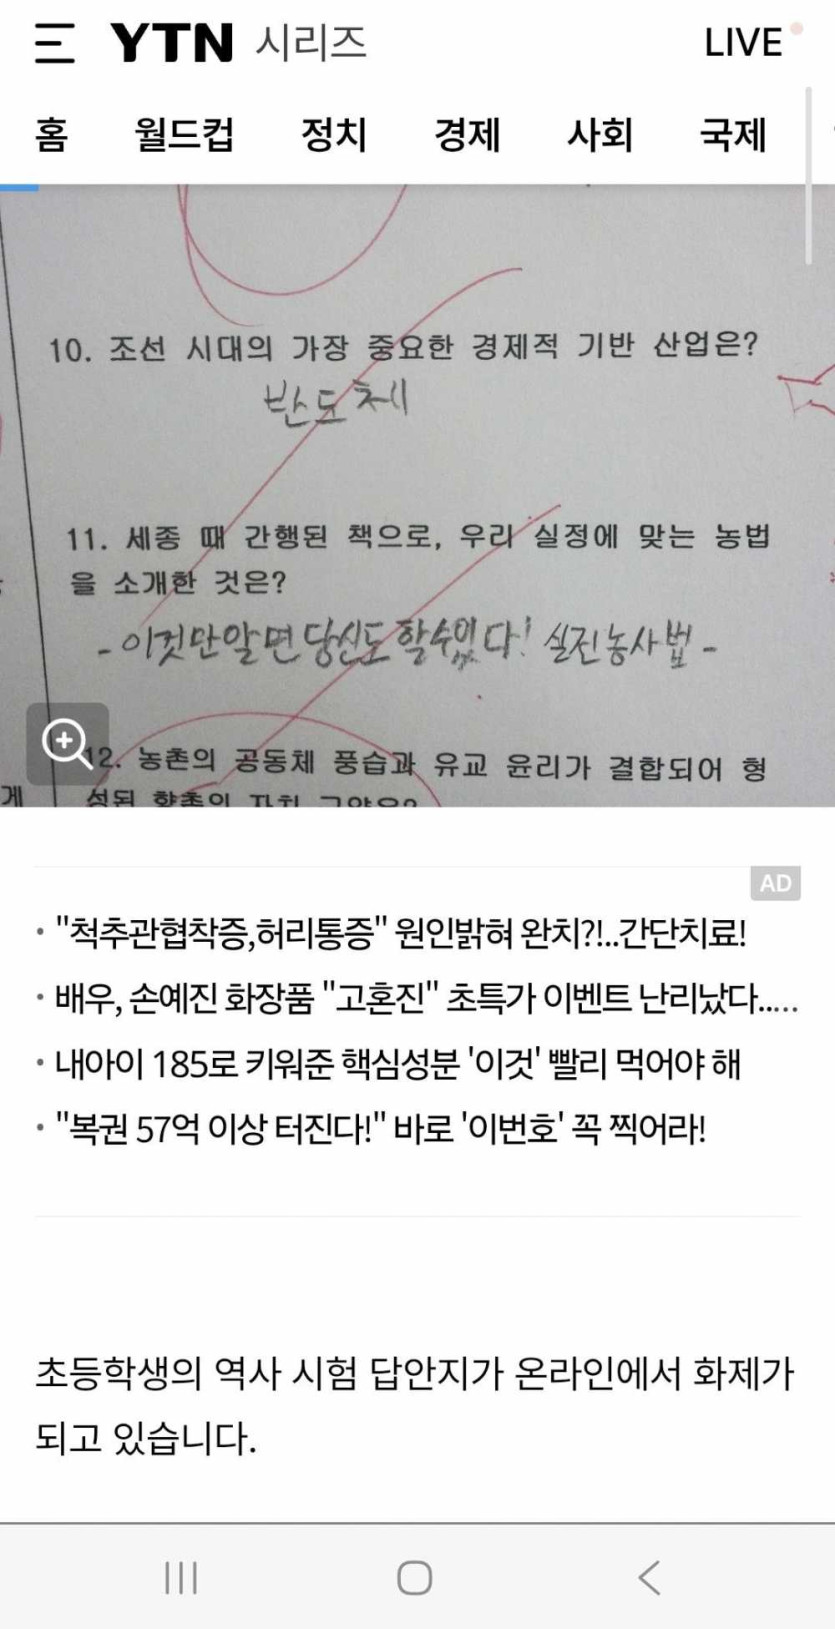 YTN 시리즈 LIVE
홈 월드컵 정치 경제 사회 국제
10. 조선 시대의 가장 중요한 경제적 기반 산업은?
반도체
11. 세종 때 간행된 책으로, 우리 실정에 맞는 농법
을 소개한 것은?
- 이것만 알면 당신도 할 수 있다! 실전농사법 -
12. 농촌의 공동체 풍습과 유교 윤리가 결합되어 형
성된 향촌의 자치 규약은?
게
AD
· "척추관협착증,허리통증" 원인밝혀 완치?!..간단치료!
· 배우, 손예진 화장품 "고혼진" 초특가 이벤트 난리났다.....
· 내아이 185로 키워준 핵심성분 '이것' 빨리 먹어야 해
· "복권 57억 이상 터진다!" 바로 '이번호' 꼭 찍어라!
초등학생의 역사 시험 답안지가 온라인에서 화제가
되고 있습니다.